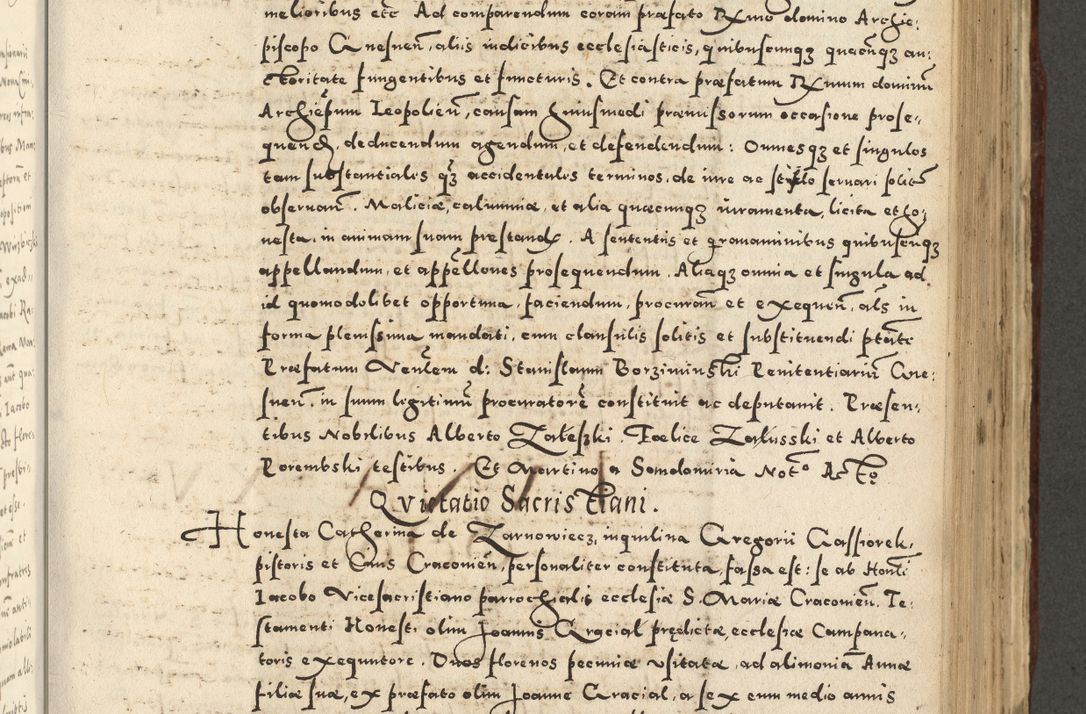 melioribus etc̃ Ad comparendum coram præfato Rx̃mo domino Archie-
piscopo Gnesneñ, alijs iudicibus ecclesiasticis, quibuscunqꝫ quacunqꝫ au:
ctoritate fungentibus et functuris. Et contra præfatum Rx̃mum dominũ
Archiep̃um Leopolieñ, causam huiusmodi præmissorum occasione prose-
quend̃, deducendum agendum, et defendendum: Omnesqꝫ et singulos
tam substantiales qꝫ̃ accidentales terminos, de iure ac stylo servari solitos
obseruañ. Maliciæ, calumniæ, et alia quæcunqꝫ iuramenta, licita et ho-
nesta, in animam suam prestand̃. A sententijs et grauaminibus quibuscunqꝫ
appellandum, et app̃ellones prosequendum. Aliaqꝫ omnia et singula ad
id quomodolibet opportuna, faciendum, procurañ et exequeñ, als̃ in
forma plenissima mandati, cum clausulis solitis et substituendi ptãte
Præfatum Veñlem d: Stanislaum Borziminski Penitentiariũ Gne:
sneñ, in suum legitimũ procuratorẽ constituit ac deputauit. Præsen-
tibus Nobilibus Alberto Zaleszki. Fœlice Zalusski et Alberto
Porembski testibus. Et Martino a Somdomiria Not° Act°
Qvietatio Sacristiani.
Honesta Catherina de Zarnowiecz, inquilina Gregorii Gassiorek,
pistoris et Ciuis Cracouieñ, personaliter constituta, fassa est: se ab Honli
Iacobo Vicesacristiano parrochialis ecclesiæ S. Mariæ Cracouieñ. Te-
stamenti Honesti olim Joannis Gracial prędictæ, ecclesiæ Campana-
toris exequutore. Duos florenos pecuniæ usitatæ, ad alimoniã Annæ
filiæ suæ, ex præfato olim Joanne Gracial, a sex cum medio annis